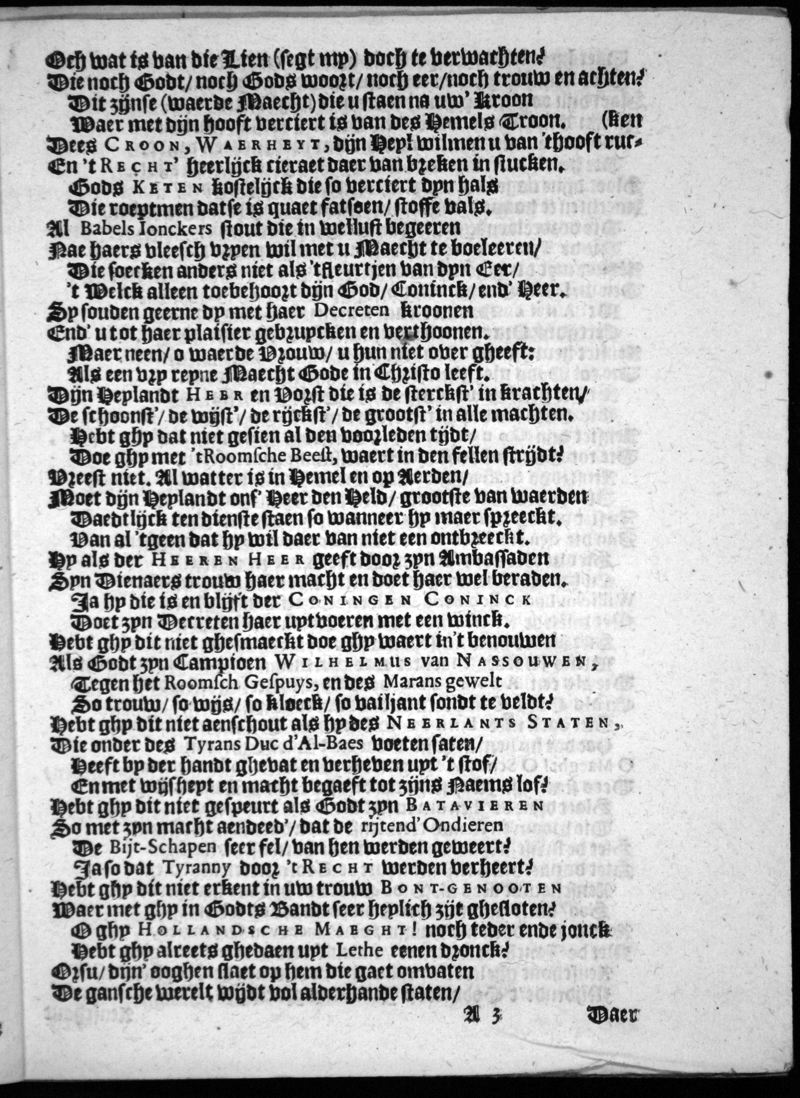 Och wat is van die Lien (segt my) doch te verwachten?
Die noch Godt/ noch Gods woort/ noch eer/ noch trouw en achten?
Dit zijnse (waerde Maecht) die u staen na uw' Kroon
Waer met dijn hooft verciert is van des Hemels Troon. (ken
Dees CROON, WAERHEYT, dijn Heyl wilmen u van 'thooft ruc-
En 't RECHT' heerlijck cieraet daer van breken in stucken.
Gods KETEN kostelijck die so verciert dyn hals
Die roeptmen datse is quaet fatsoen/ stoffe vals.
Al Babels Ionckers stout die in wellust begeeren
Nae haers vleesch vryen wil met u Maecht te boeleeren/
Die soecken anders niet als 'tfleurtjen van dyn Eer/
't Welck alleen toebehoort dijn God/ Coninck/ end' Heer.
Sy souden geerne dy met haer Decreten kroonen
End' u tot haer plaisier gebruycken en verthoonen.
Maer neen/ o waerde Vrouw/ u hun niet over gheeft:
Als een vry reyne Maecht Gode in Christo leeft.
Dijn Heylandt HEER en Vorst die is de sterckst' in krachten/
De schoonst'/ de wijst'/ de rijckst'/ de grootst' in alle machten.
Hebt ghy dat niet gesien al den voorleden tijdt/
Doe ghy met 'tRoomsche Beest, waert in den fellen strijdt?
Vreest niet. Al watter is in Hemel en op Aerden/
Moet dijn Heylandt ons' Heer den Held/ grootste van waerden
Daedtlijck ten dienste staen so wanneer hy maer spreeckt.
Van al 'tgeen dat hy wil daer van niet een ontbreeckt.
Hy als der HEEREN HEER geeft door zyn Ambassaden
Syn Dienaers trouw haer macht en doet haer wel beraden.
Ja hy die is en blijft der CONINGEN CONINCK
Doet zyn Decreten haer uytvoeren met een winck.
Hebt ghy dit niet ghesmaeckt doe ghy waert in't benouwen
Als Godt zyn Campioen WILHELMUS van NASSOUWEN,
Tegen het Roomsch Gespuys, en des Marans gewelt
So trouw/ so wijs/ so kloeck/ so vailjant sondt te veldt?
Hebt ghy dit niet aenschout als hy des NEERLANTS STATEN,
Die onder des Tyrans Duc d'Al-Baes voeten saten/
Heeft by der handt ghevat en verheven uyt 't stof/
En met wijsheyt en macht begaeft tot zijns Naems lof?
Hebt ghy dit niet gespeurt als Godt zyn BATAVIEREN
So met zyn macht aendeed'/ dat de rijtend' Ondieren
De Bijt-Schapen seer fel/ van hen werden geweert?
Ja so dat Tyranny door 't RECHT werden verheert?
Hebt ghy dit niet erkent in uw trouw BONT-GENOOTEN
Waer met ghy in Godts Bandt seer heylich zijt ghesloten?
O ghy HOLLANDSCHE MAEGHT! noch teder ende jonck
Hebt ghy alreets ghedaen uyt Lethe eenen dronck?
Orsu/ dijn' ooghen slaet op hem die gaet omvaten
De gansche werelt wijdt vol alderhande staten/
A 3 Daer